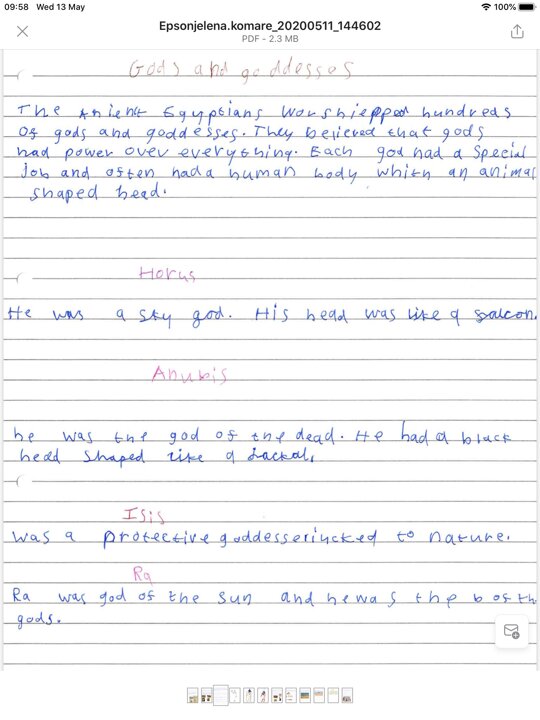 09:58 Wed 13 May 100%
Epsonjelena.komare_20200511_144602
PDF - 2.3 MB
Gods and goddesses
The Anient Egyptians worshiepped hundreds
of gods and goddesses. They believed that gods
had power over everything. Each god had a special
Job and often had a human body which an animal
shaped head.
Horus
He was a sky god. His head was like a falcon.
Anubis
he was the god of the dead. He had a black
head shaped like a Jackal,
Isis
was a protective to nature.
Ra
Ra was god of the sun and he was the of th
gods.